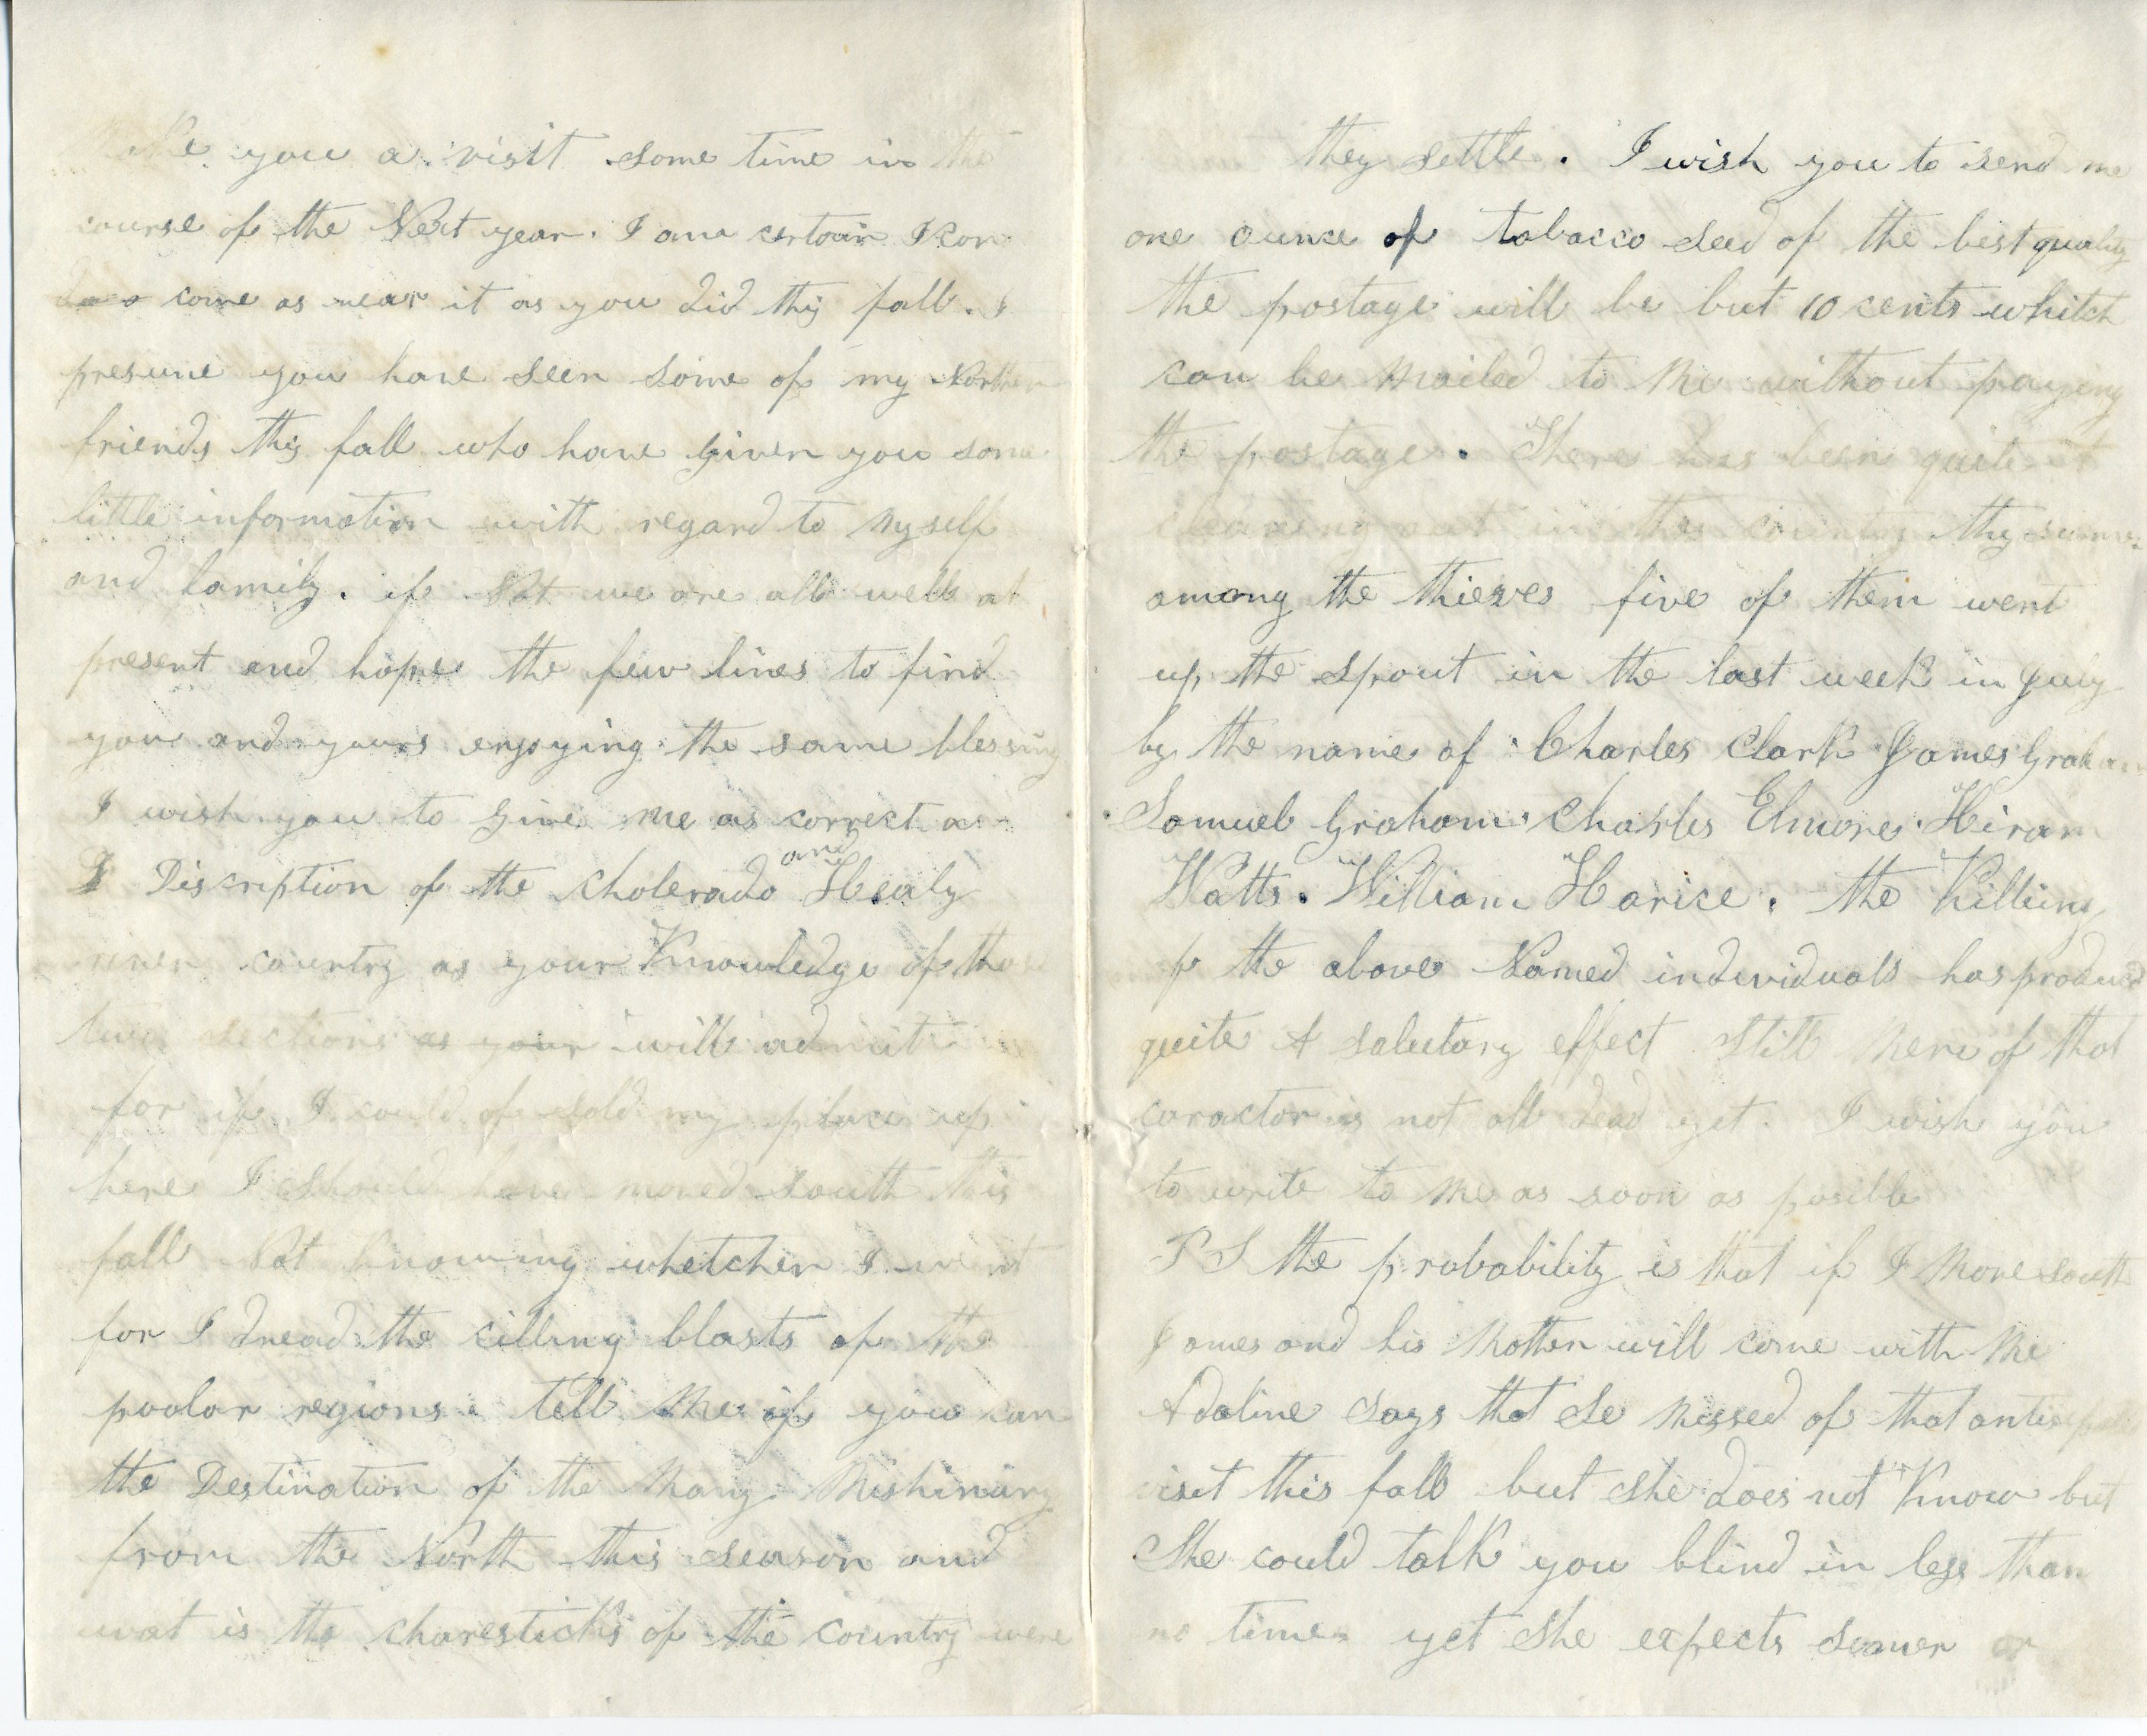 make you a visit some time in the
course of the Next year. I am certain I can
come as near it as you did this fall. I
presume you have seen some of my Northern
friends this fall who have given you some
little information with regard to Myself
and family. if Not we are all well at
present and hope the few lines to find
you and yours enjoying the same blessing
I wish you to give me as correct a
Discription of the Cholerado and
river country as your Knowledge of thos
two sections as your will admit
for if I could of sold my place up
here I should have moved south this
fall Not knowing whetcher I went
for I dread the cilling blasts of the
poolar regions. tell Me if you can
the Destination of the Many
from the North this season and
wat is the charesticks of the country were
they settle. I wish you to send me
one ounce of tobacco seed of the best quality
the postage will be but 10 cents whitch
can be Mailed to Me without paying
the postage. There has been quite a
clearing out in this country this summer
among the thieves five of them went
up the spout in the last week in July
by the name of Charles Clark James Graham
Samuel Graham Charles Elmore Hiram
Watts. William Harice. the Killing
of the above Named individuals has produced
quite A salutary effect still Men of that
caractor is not all dead yet. I wish you
to write to Me as soon as posible
PS the probability is that if I Move south
James and his Mother will come with Me
Adaline says that se Missed of that
visit this fall but she does not Know but
She could talk you blind in less than
no time yet she expects sooner or